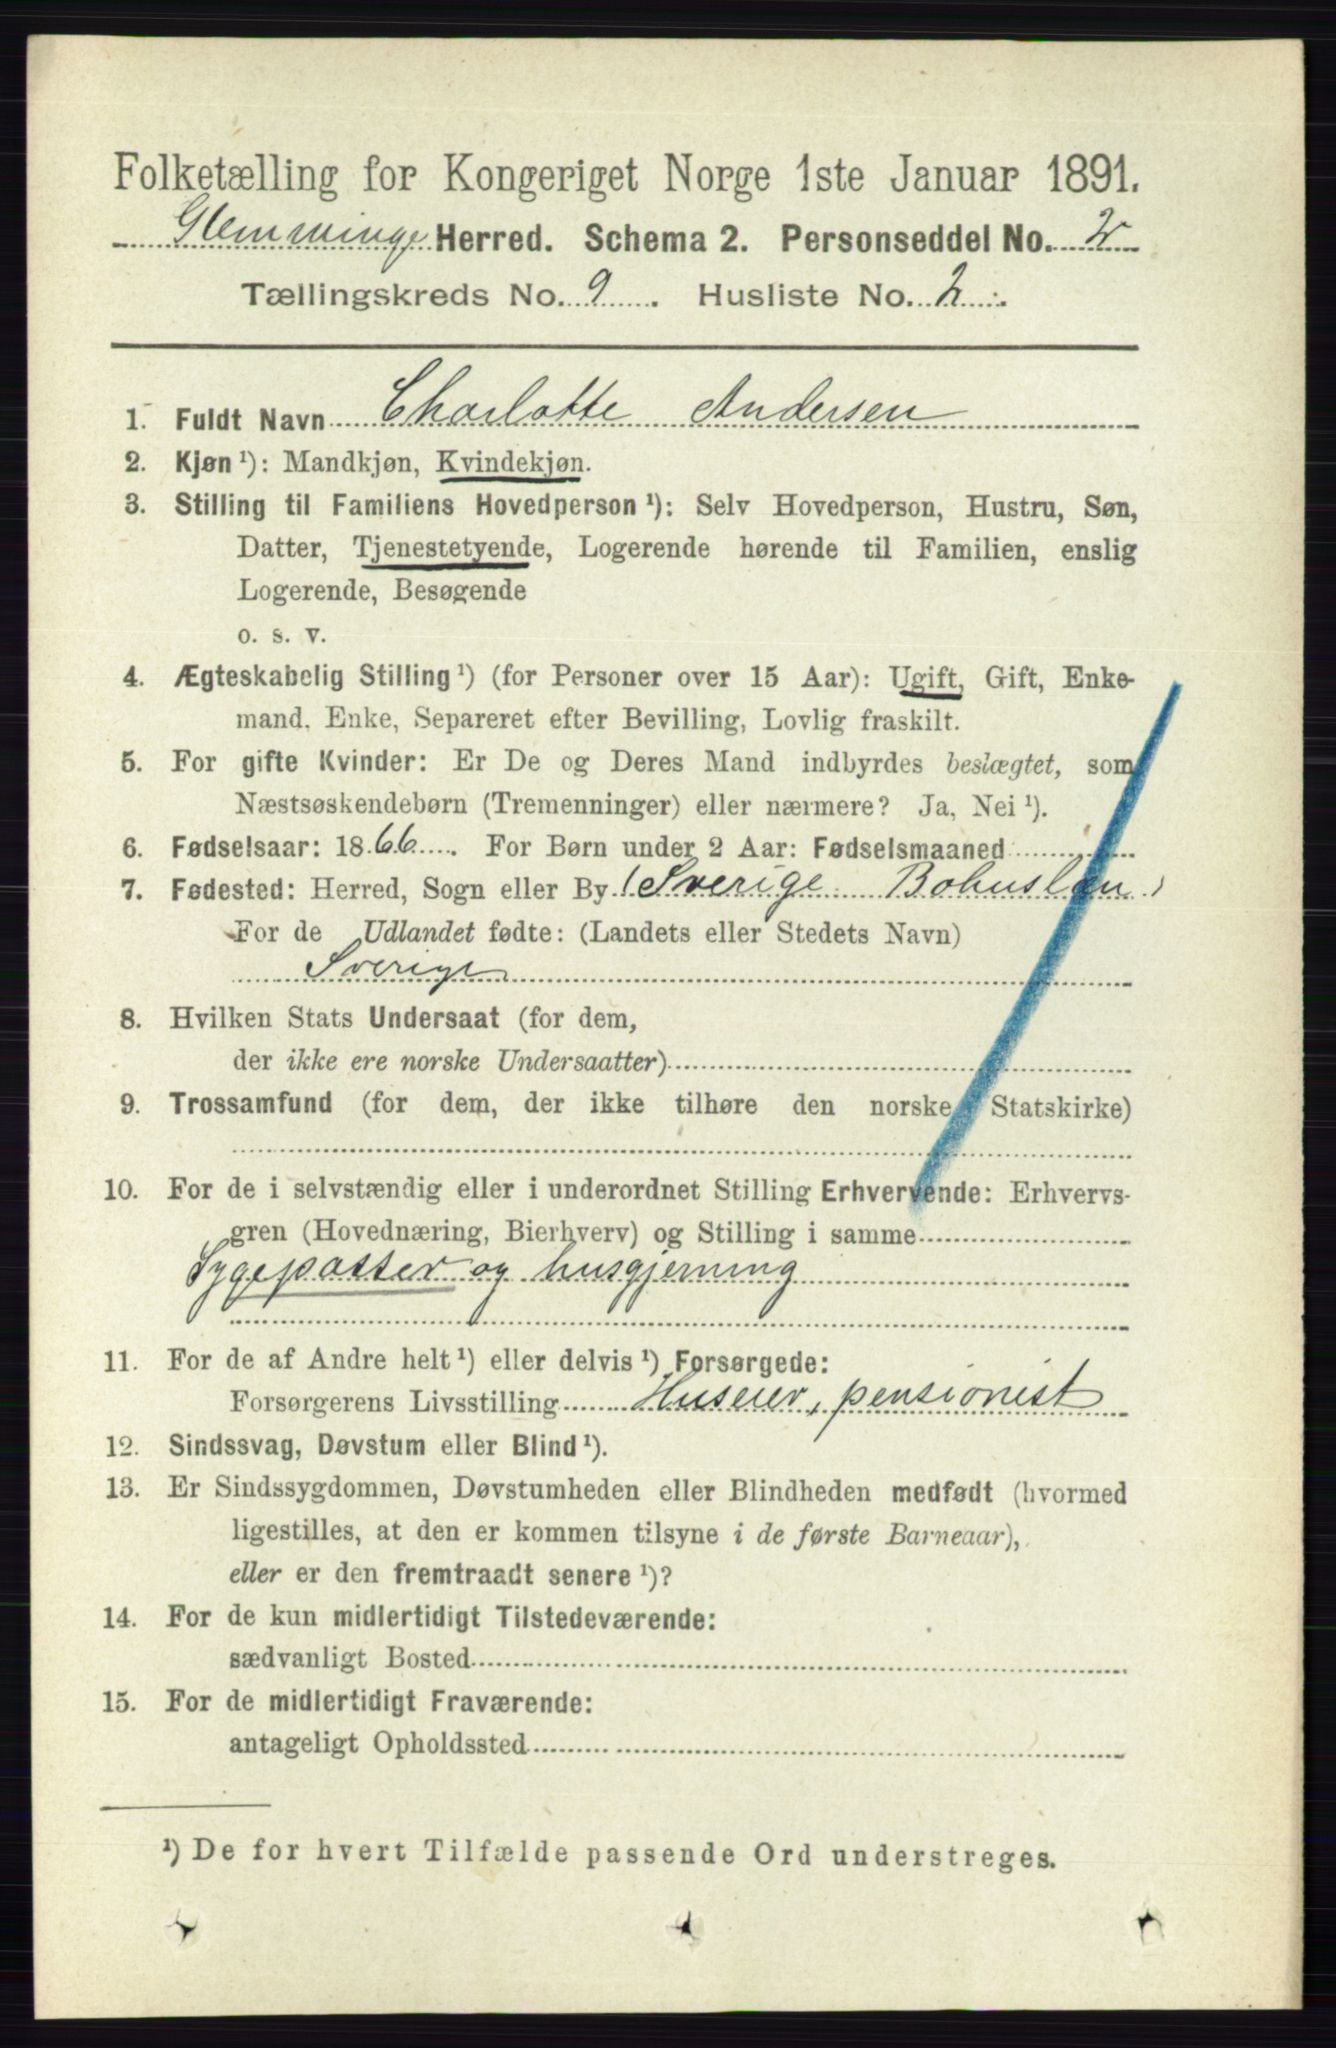 Folketælling for Kongeriget Norge 1ste Januar 1891.
Glemminge Herred. Schema 2. Personseddel No. 2
Tællingskreds No. 9. Husliste No. 2.
1. Fuldt Navn Charlotte Andersen
2. Kjøn ¹): Mandkjøn, Kvindekjøn.
3. Stilling til Familiens Hovedperson ¹): Selv Hovedperson, Hustru, Søn,
Datter, Tjenestetyende, Logerende hørende til Familien, enslig
Logerende, Besøgende
o. s. v.
4. Ægteskabelig Stilling ¹) (for Personer over 15 Aar): Ugift, Gift, Enke-
mand, Enke, Separeret efter Bevilling, Lovlig fraskilt.
5. For gifte Kvinder: Er De og Deres Mand indbyrdes beslægtet, som
Næstsøskendebørn (Tremenninger) eller nærmere? Ja, Nei ¹).
6. Fødselsaar: 1866. For Børn under 2 Aar: Fødselsmaaned
7. Fødested: Herred, Sogn eller By (Sverige Bohuslæn)
For de Udlandet fødte: (Landets eller Stedets Navn)
Sverige
8. Hvilken Stats Undersaat (for dem,
der ikke ere norske Undersaatter)
9. Trossamfund (for dem, der ikke tilhøre den norske Statskirke)
10. For de i selvstændig eller i underordnet Stilling Erhvervende: Erhvervs-
gren (Hovednæring, Bierhverv) og Stilling i samme
Sygepasser og husgjerning
11. For de af Andre helt ¹) eller delvis ¹) Forsørgede:
Forsørgerens Livsstilling Huseier, pensionist
12. Sindssvag, Døvstum eller Blind ¹).
13. Er Sindssygdommen, Døvstumheden eller Blindheden medfødt (hvormed
ligestilles, at den er kommen tilsyne i de første Barneaar),
eller er den fremtraadt senere ¹)?
14. For de kun midlertidigt Tilstedeværende:
sædvanligt Bosted
15. For de midlertidigt Fraværende:
antageligt Opholdssted
¹) De for hvert Tilfælde passende Ord understreges.